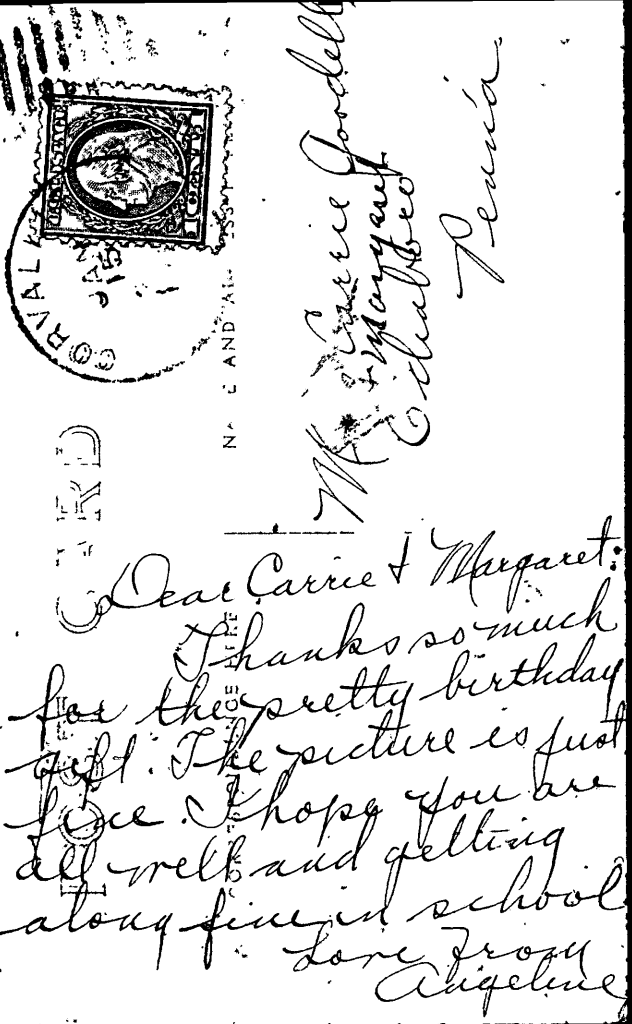 POST CARD
CORVAL
JAN
15
U.S. POSTAGE
1 CENTS 1
NA E AND A
M Carrie Goodell
+ Margaret
Edinboro
Penn'a.
Dear Carrie & Margaret:
Thanks so much
for the pretty birthday
gift. The picture is just
fine. I hope you are
all well and getting
along fine in school
Love from
Angeline